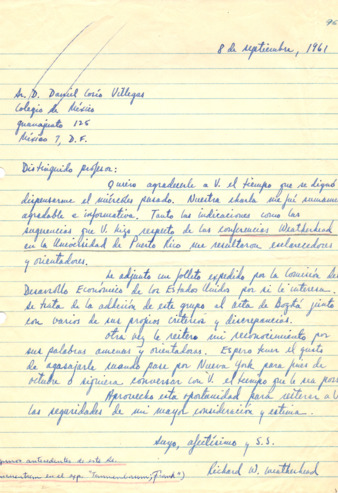 8 de septiembre, 1961
Sr. D. Daniel Cosío Villegas
Colegio de México
Guanajuato 125
México 7, D.F.
Distinguido profesor:
Quiero agradecerle a V. el tiempo que se dignó
dispensarme el miércoles pasado. Nuestra charla me fué sumamente
agradable e informativa. Tanto las indicaciones como las
sugerencias que V. hizo respecto de las conferencias Weatherhead
en la Universidad de Puerto Rico me resultaron esclarecedoras
y orientadores.
Le adjunto un folleto expedido por la Comisión de
Desarrollo Económico de los Estados Unidos por si le interesa.
Se trata de la adhesión de este grupo al acta de Bogotá junto
con varios de sus propios criterios y discrepancias.
Otra vez le reitero mi reconocimiento por
sus palabras amenas y orientadores. Espero tener el gusto
de agasajarle cuando pase por Nueva York para fines de
octubre o siquiera conversar con V. el tiempo que le sea
Aprovecho esta oportunidad para reiterar a V.
las seguridades de mi mayor consideración y estima.
Suyo, afectísimo y S.S.
antecedentes de este Sr.
en el exp. "Tannenbaum, Frank")
Richard W. Weatherhead